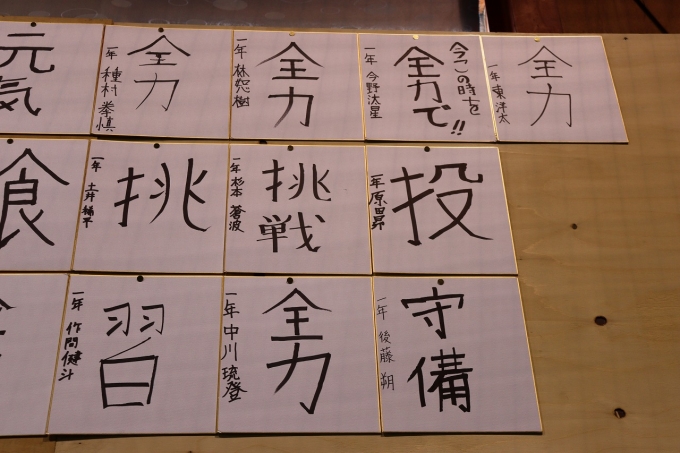 元気
全力
一年 種村 拳慎
全力
一年 林 惺樹
今この時を
全力で!!
一年 今野汰星
全力
一年 東 洋太
食
挑
一年 土井 陽平
挑戦
一年 杉本 蒼波
投
一年 原田昴
習
一年 作間健斗
全力
一年 中川 琉登
守備
一年 後藤 朔